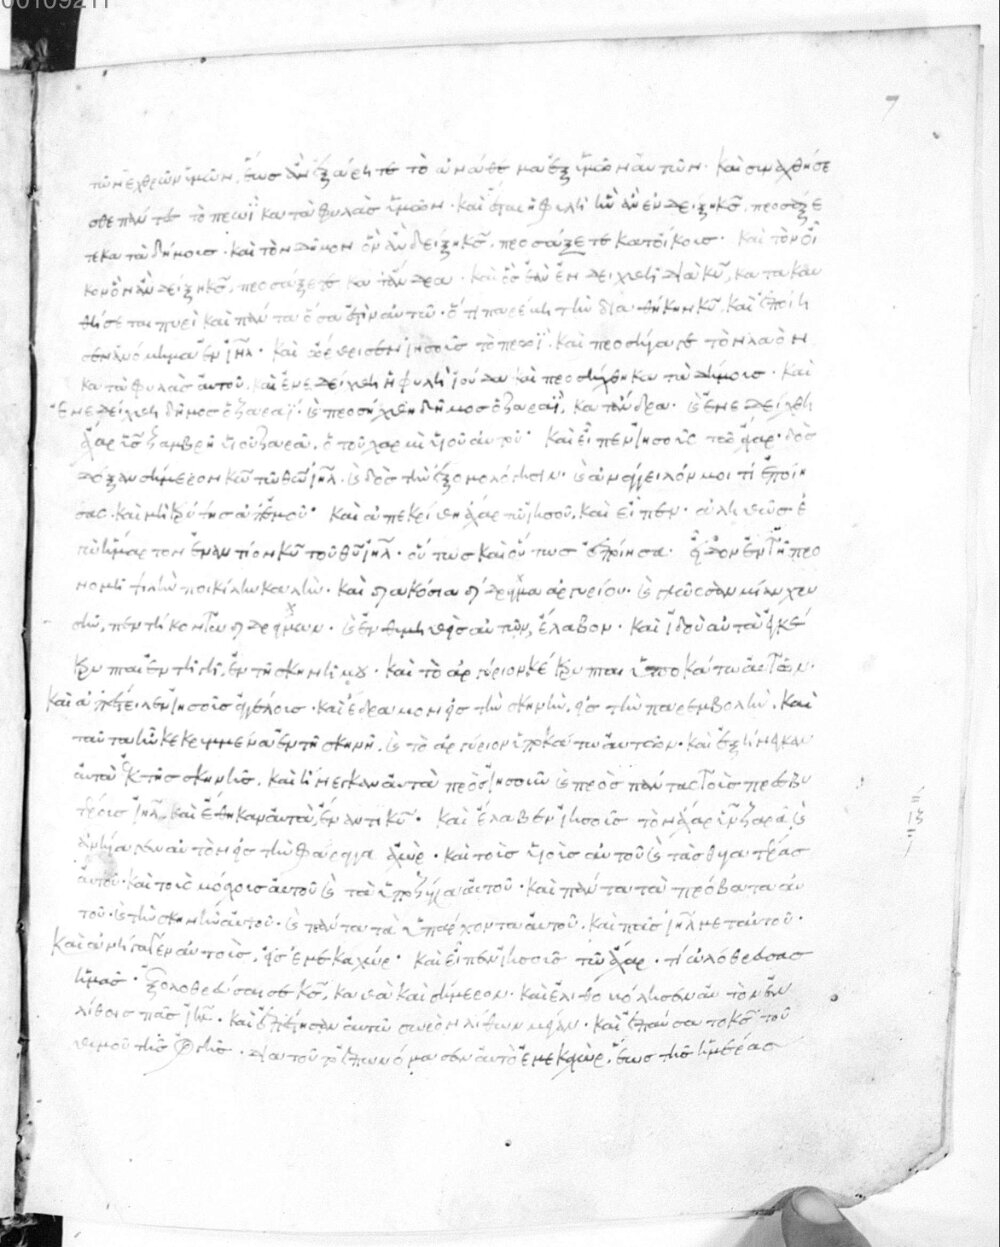 00109211
7
τῶν ἐχθρῶν ὑμῶν, ἕως ἂν ἐξάρητε τὸ ἀνάθεμα ἐξ ὑμῶν αὐτῶν· καὶ συναχθήσε
σθε πάντες τὸ πρωῒ κατὰ φυλὰς ὑμῶν· καὶ ἔσται ἡ φυλὴ ἣν ἂν ἐνδείξη κς̄, προσάξε
τε κατὰ δήμοις· καὶ τὸν δῆμον ὃν ἂν δείξη κς̄, προσάξετε κατ' οἴκοις· καὶ τὸν οἶ
κον ὃν ἂν δείξη κς̄, προσάξετε κατ' ἄνδρα· καὶ ὃς ἐὰν ἐνδειχθῆ διὰ κῡ, κατακαυ
θήσεται πυρὶ καὶ πάντα ὅσα ἐστὶν αὐτοῦ· ὅτι παρέβη τὴν διαθήκην κῡ, καὶ ἐποίη
σεν ἀνόμημα ἐν ιηλ̄· καὶ ὤρθρισεν ἰησοῦς τὸ πρωῒ, καὶ προσήγαγε τὸν λαὸν
κατὰ φυλὰς αὐτοῦ, καὶ ἐνεδείχθη ἡ φυλὴ ἰούδα καὶ προσήχθη κατὰ δήμοις· καὶ
ἐνεδείχθη δῆμος ὁ ζαραῒ· καὶ προσήχθη δῆμος ὁ ζαραῒ, κατ' ἄνδρα· καὶ ἐνεδείχθη
ἄχαρ υἱὸς ζαμβρῆ υἱοῦ ζαρὰ, ὁ τοῦ χαρμὶ υἱοῦ αὐτοῦ· καὶ εἶπεν ἰησοῦς τῶ ἄχαρ· δὸς
δόξαν σήμερον κω̄ τῶ θω̄ ιηλ̄, καὶ δὸς τὴν ἐξομολόγησιν· καὶ ἀνάγγειλόν μοι τί ἐποίη
σας· καὶ μὴ κρύψης ἀπ' ἐμοῦ· καὶ ἀπεκρίθη ἄχαρ τῶ ἰησοῦ, καὶ εἶπεν· ἀληθῶς ἐ
γὼ ἥμαρτον ἐναντίον κῡ τοῦ θῡ ιηλ̄· οὕτως καὶ οὕτως ἐποίησα· εἶδον ἐν τῆ προ
νομῆ ψιλὴν ποικίλην καλὴν· καὶ διακόσια δίδραχμα ἀργυρίου· καὶ γλῶσσαν μίαν χρυ
σῆν, πεντήκοντα διδράχμων· καὶ ἐνθυμηθεὶς αὐτῶν, ἔλαβον· καὶ ἰδοὺ αὐτὰ ἐγκέ
κρυπται ἐν τῆ γῆ, ἐν τῆ σκηνῆ μου· καὶ τὸ ἀργύριον κέκρυπται ὑποκάτω αὐτῶν·
καὶ ἀπέστειλεν ἰησοῦς ἀγγέλοις· καὶ ἔδραμον εἰς τὴν σκηνὴν, εἰς τὴν παρεμβολὴν, καὶ
ταῦτα ἦν κεκρυμμένα ἐν τῆ σκηνῆ, καὶ τὸ ἀργύριον ὑποκάτω αὐτῶν· καὶ ἐξήνεγκαν
αὐτὰ ἐκ τῆς σκηνῆς, καὶ ἤνεγκαν αὐτὰ πρὸς ἰησοῦν καὶ πρὸς πάντας τοὺς πρεσβυ
τέροις ιηλ̄, καὶ ἔθηκαν αὐτὰ, ἔναντι κῡ· καὶ ἔλαβεν ἰησοῦς τὸν ἄχαρ υἱὸν ζαρὰ, καὶ
ἀνήγαγεν αὐτὸν εἰς τὴν φάραγγα ἀχώρ· καὶ τοὺς υἱοὺς αὐτοῦ καὶ τὰς θυγατέρας
αὐτοῦ· καὶ τοὺς μόσχοις αὐτοῦ καὶ τὰ ὑποζύγια αὐτοῦ· καὶ πάντα τὰ πρόβατα αὐ
τοῦ· καὶ τὴν σκηνὴν αὐτοῦ· καὶ πάντα τὰ ὑπάρχοντα αὐτοῦ, καὶ πᾶς ιηλ̄ μετ' αὐτοῦ·
καὶ ἀνήγαγεν αὐτοὺς, εἰς ἐμεκαχώρ· καὶ εἶπεν ἰησοῦς τῶ ἄχαρ· τί ὠλόθρευσας
ἡμᾶς· ἐξολοθρεύσαι σε κς̄, καθὰ καὶ σήμερον· καὶ ἐλιθοβόλησεν αὐτὸν ἐν
λίθοις πᾶς ιηλ̄· καὶ ἐπέστησαν αὐτῶ σωρὸν λίθων μέγαν· καὶ ἐπαύσατο κς̄ τοῦ
θυμοῦ τῆς ὀργῆς· διὰ τοῦτο ἐπωνόμασεν αὐτὸ ἐμεκαχὼρ, ἕως τῆς ἡμέρας